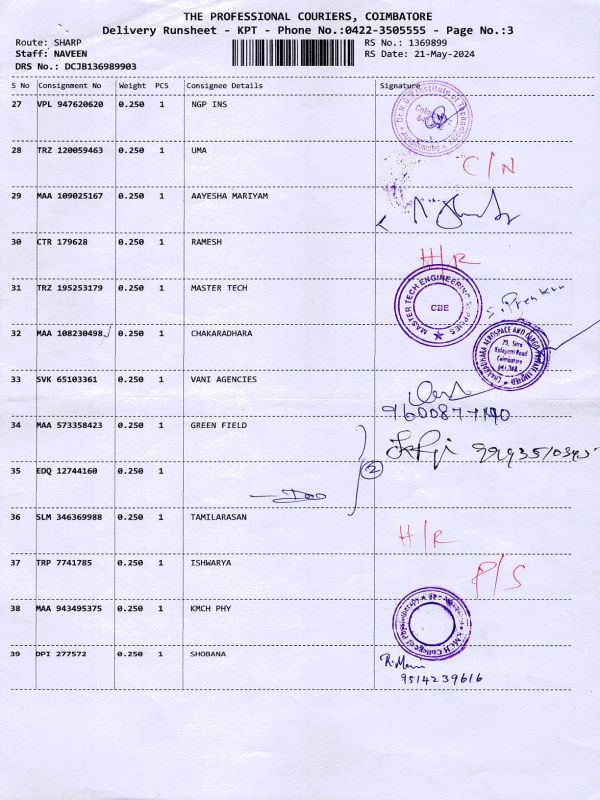 THE PROFESSIONAL COURIERS, COIMBATORE
Delivery Runsheet - KPT - Phone No.:0422-3505555 - Page No.:3
Route: SHARP RS No.: 1369899
Staff: NAVEEN RS Date: 21-May-2024
DRS No.: DCJB136989903
S No Consignment No Weight PCS Consignee Details Signature
27 VPL 947620620 0.250 1 NGP INS
28 TRZ 120059463 0.250 1 UMA
C/N
29 MAA 109025167 0.250 1 AAYESHA MARIYAM
30 CTR 179628 0.250 1 RAMESH
H/R
31 TRZ 195253179 0.250 1 MASTER TECH
MASTER TECH ENGINEERING SUPPLIES
CBE
32 MAA 108230498 0.250 1 CHAKARADHARA
Coimbatore
33 SVK 65103361 0.250 1 VANI AGENCIES
34 MAA 573358423 0.250 1 GREEN FIELD
35 EDQ 12744160 0.250 1
2
36 SLM 346369988 0.250 1 TAMILARASAN
H/R
37 TRP 7741785 0.250 1 ISHWARYA
P/S
38 MAA 943495375 0.250 1 KMCH PHY
39 DPI 277572 0.250 1 SHOBANA
9514239616